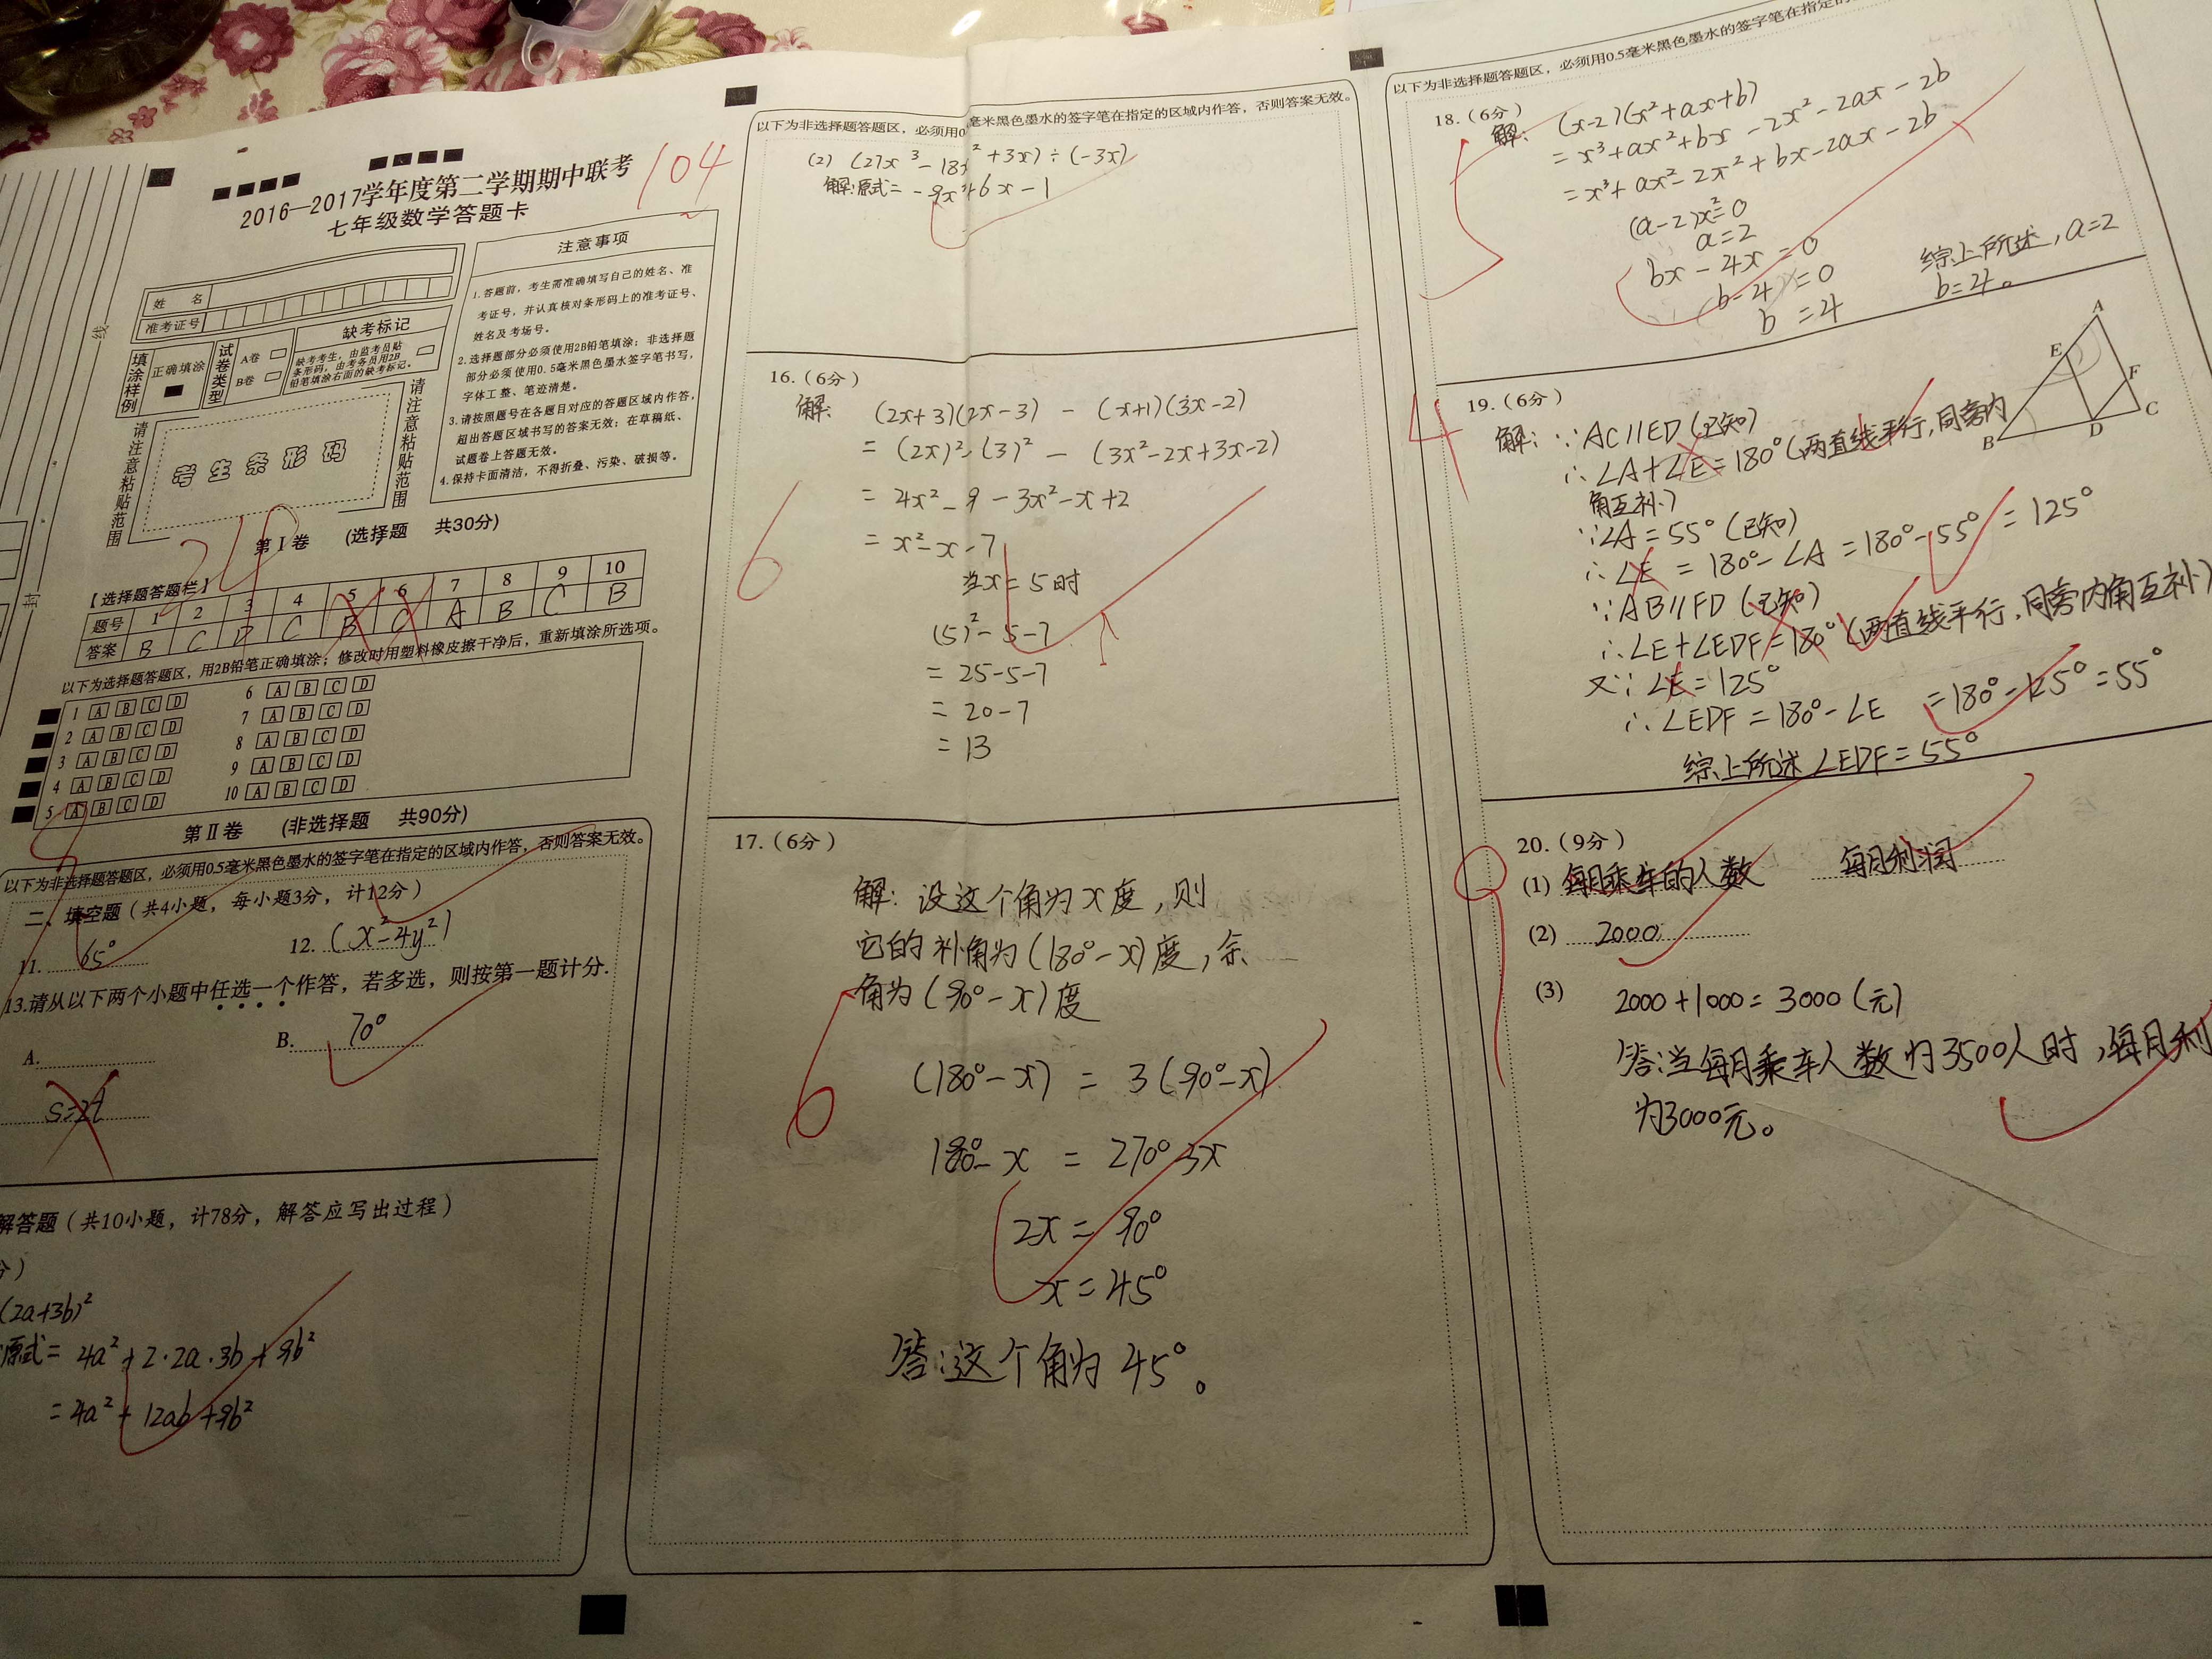 2016—2017学年度第二学期期中联考
七年级数学答题卡
104
姓 名
准考证号
填涂样例
正确填涂
试卷类型
A卷
B卷
缺考标记
缺考考生，由监考员贴
条形码，由考务员用2B
铅笔填涂右面的缺考标记。
注意事项
1.答题前，考生需准确填写自己的姓名、准
考证号，并认真核对条形码上的准考证号、
姓名及考场号。
2.选择题部分必须使用2B铅笔填涂；非选择题
部分必须使用0.5毫米黑色墨水签字笔书写，
字体工整、笔迹清楚。
3.请按照题号在各题目对应的答题区域内作答，
超出答题区域书写的答案无效；在草稿纸、
试题卷上答题无效。
4.保持卡面清洁，不得折叠、污染、破损等。
请注意粘贴范围
考生条形码
请注意粘贴范围
线
封
24
第Ⅰ卷 (选择题 共30分)
【选择题答题栏】
题号 1 2 3 4 5 6 7 8 9 10
答案 B C D C B C A B C B
以下为选择题答题区，用2B铅笔正确填涂；修改时用塑料橡皮擦干净后，重新填涂所选项。
1 A B C D 6 A B C D
2 A B C D 7 A B C D
3 A B C D 8 A B C D
4 A B C D 9 A B C D
5 A B C D 10 A B C D
第Ⅱ卷 (非选择题 共90分)
以下为非选择题答题区，必须用0.5毫米黑色墨水的签字笔在指定的区域内作答，否则答案无效。
二、填空题（共4小题，每小题3分，计12分）
11. 65° 12. (x²-4y²)
13.请从以下两个小题中任选一个作答，若多选，则按第一题计分.
A. B. 70°
S=2t
解答题（共10小题，计78分，解答应写出过程）
分)
(2a+3b)²
原式= 4a²+2·2a·3b+9b²
=4a²+12ab+9b²
以下为非选择题答题区，必须用0 毫米黑色墨水的签字笔在指定的区域内作答，否则答案无效。
(2) (27x³-18x²+3x)÷(-3x)
解:原式=-9x²+6x-1
16.（6分）
解: (2x+3)(2x-3) - (x+1)(3x-2)
= (2x)²-(3)² - (3x²-2x+3x-2)
= 4x²-9-3x²-x+2
= x²-x-7
当x=5时
(5)²-5-7
= 25-5-7
= 20-7
= 13
6
17.（6分）
解: 设这个角为x度, 则
它的补角为(180°-x)度, 余
角为(90°-x)度
(180°-x) = 3(90°-x)
180°-x = 270°-3x
2x = 90°
x = 45°
答:这个角为45°。
6
以下为非选择题答题区，必须用0.5毫米黑色墨水的签字笔在指定的
18.（6分）
解: (x-2)(x²+ax+b)
= x³+ax²+bx-2x²-2ax-2b
= x³+ax²-2x²+bx-2ax-2b
(a-2)x²=0
a=2
bx-4x=0
(b-4)=0
b=4
综上所述, a=2
b=4。
5
19.（6分）
A
E
F
B
D
C
解: ∵AC∥ED(已知)
∴∠A+∠E=180°(两直线平行,同旁内
角互补)
∵∠A=55°(已知)
∴∠E=180°-∠A=180°-55°=125°
∵AB∥FD(已知)
∴∠E+∠EDF=180°(两直线平行,同旁内角互补)
又∵∠E=125°
∴∠EDF=180°-∠E =180°-125°=55°
综上所述∠EDF=55°
4
20.（9分）
(1) 每月乘车的人数 每月利润
(2) 2000
(3) 2000+1000=3000(元)
答:当每月乘车人数为3500人时,每月利
为3000元。
9